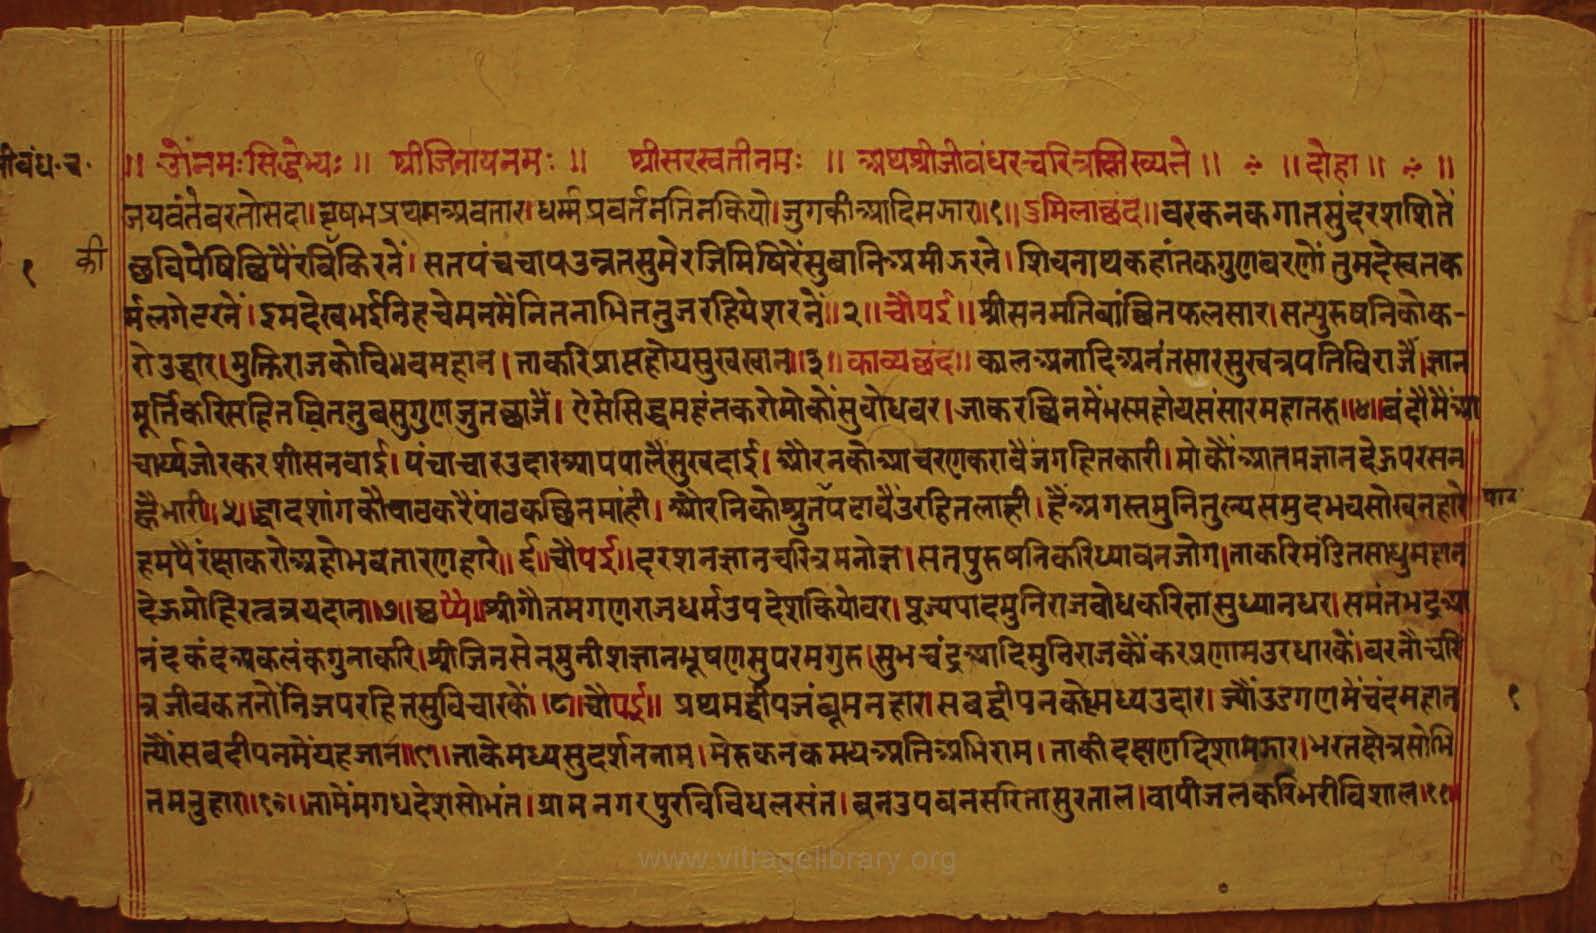 जीवंध॰च॰
॥ ॐनमःसिद्धेभ्यः॥ श्रीजिनायनमः॥ श्रीसरस्वतीनमः ॥ अथश्रीजीवंधरचरित्रलिख्यते॥ ॥दोहा॥ ॥
जयवंतैवरतोसदा।वृषभप्रथमअवतार।धर्म्मप्रवर्तनजिनकियो।जुगकीआदिमझार॥१॥ऽमिलाछंद॥वरकनकगातसुंदरशशितैं
१ की छविपेषिछिपैंरविकिरनें। सतपंचचापउन्नतसुमेरजिमिषिरैंसुवानिअमीझरने। शिवनाथकहांतकगुणवरणों तुमदेखतक
र्मलगेटरनें।हमदेखभईनिहचेमनमैंनितनाभितनुजरहियेशरनें॥२॥चौपई॥श्रीसनमतिवांछितफलसार।सत्पुरुषनिकोक-
रोउद्धार।मुक्तिराजकोविभवमहान।ताकरिप्राप्तहोयसुखखान॥३॥काव्यछंद॥कालअनादिअनंतसारसुखत्रपतिविराजैं।ज्ञान
मूर्त्तिकरिसहितवितनुवसुगुणजुतछाजैं। ऐसेसिद्धमहंतकरोमोकौंसुवोधवर।जाकरछिनमेंभस्महोयसंसारमहातरु॥४॥वंदौंमैंआ
चार्य्यजोरकरशीसनवाई।पंचाचारउदारआपपालैंसुखदाई।औरनकोआचरणकरावैंजगहितकारी।मोकौंआतमज्ञानदेऊपरसन
ह्वैभारी॥५॥द्वादशांगकौपाठकरैंपाठकछिनमांही।औरनिकोश्रुतपढावैंउरहितलाही।हैंअगस्तमुनितुल्यसमुदभवसोखनहारे
हमपैंरक्षाकरोअहोभवतारणहारे॥६॥चौपई॥दरशनज्ञानचरित्रमनोज्ञ।सतपुरुषनिकरिध्यावनजोग।ताकरिमंडितसाधुमहान
देऊमोहिरत्नत्रयदान॥७॥छप्पै॥श्रीगौतमगणराजधर्मउपदेशकियोवर।पूज्यपादमुनिराजवोधकरितासुध्यानधर।समंतभद्रआ
नंदकंदअकलंकगुनाकरि।श्रीजिनसेनमुनीशज्ञानभूषणसुपरमगुरु।सुभचंद्रआदिमुनिराजकौंकरप्रणामउरधारकैं।वरनौचरि
त्रजीवकतनोंनिजपरहितसुविचारकैं।८॥चौपई॥ प्रथमद्वीपजंबूमनहार।सबद्वीपनकोमध्यउदार। ज्यौंउडगणमैंचंदमहान १
त्यौंसवदीपनमेंयहजान॥९॥ताकेमध्यसुदर्शननाम।मेरुकनकमयअतिअभिराम।ताकीदक्षणदिशामझार।भरतक्षेत्रसोभि
तमनुहार॥१०॥तामेंमगधदेशसोभंत।ग्रामनगरपुरविविधलसंत।वनउपवनसरितासुरताल।वापीजलकरिभरीविशाल।११॥
www.vitragelibrary.org